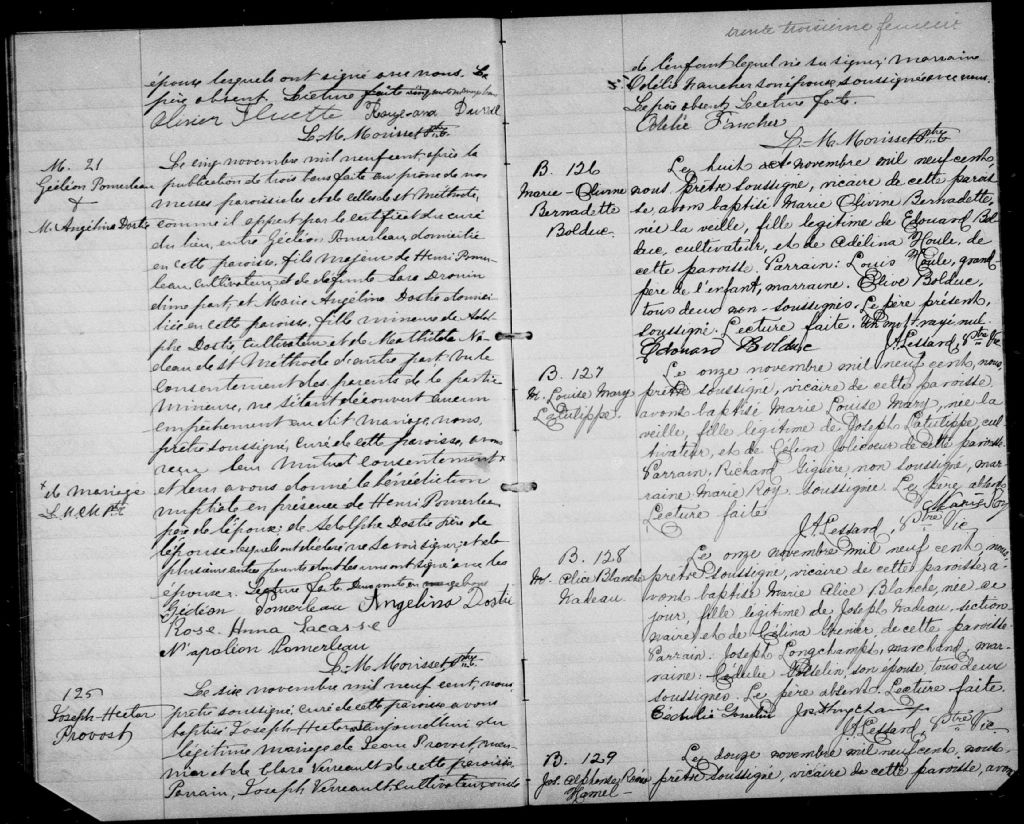 épouse lesquels ont signé avec nous. Le
père absent. Lecture faite
Olivier Fluette
L. M. Morisset Ptre
M. 21
Gédéon Pomerleau
+
M. Angélina Dostie
Le cinq novembre mil neuf cent, après la
publication de trois bans faite au prône de nos
messes paroissiales et de celles de St Méthode,
comme il appert par le certificat du curé
du lieu, entre Gédéon Pomerleau, domicilié
en cette paroisse, fils majeur de Henri Pomer-
leau, cultivateur, et de défunte Sara Drouin
d'une part, et Marie Angélina Dostie domici-
liée en cette paroisse, fille mineure de Adol-
phe Dostie cultivateur et de Mathilde Na-
deau de St Méthode d'autre part, vu le
consentement des parents de la partie
mineure, ne s'étant découvert aucun
empêchement au dit mariage, nous,
prêtre soussigné, curé de cette paroisse, avons
reçu leur mutuel consentement x
x de mariage
L. M. M. Ptre
et leur avons donné la bénédiction
nuptiale en présence de Henri Pomerleau
père de l'époux, de Adolphe Dostie père de
l'épouse lesquels ont déclaré ne savoir signer, et de
plusieurs autres parents dont les uns ont signé avec les
époux. Lecture faite.
Gédéon Pomerleau Angélina Dostie
Rose Anna Lacasse
Napoléon Pomerleau
L. M. Morisset Ptre
125
Joseph-Hector
Provost
Le six novembre mil neuf cent, nous,
prêtre soussigné, curé de cette paroisse avons
baptisé Joseph Hector né aujourd'hui du
légitime mariage de Jean Provost,
et de Clara Verreault de cette paroisse.
Parrain, Joseph Verreault cultivateur, oncle
trente troisième feuillet
de l'enfant lequel n'a su signer, marraine
Odélie Faucher son épouse soussignée avec nous.
Le père absent. Lecture faite.
Odélie Faucher
L. M. Morisset Ptre
B. 126
Marie-Olivine
Bernadette
Bolduc.
Le huit novembre mil neuf cent,
nous prêtre soussigné, vicaire de cette parois-
se, avons baptisé Marie Olivine Bernadette,
née la veille, fille légitime de Edouard Bol-
duc, cultivateur, et de Adélina Houle, de
cette paroisse. Parrain: Louis Houle, grand-
père de l'enfant, marraine. Olive Bolduc,
tous deux non-soussignés. Le père présent,
soussigné. Lecture faite. Un mot rayé nul.
Edouard Bolduc J. A. Lessard, Ptre Vic
B. 127
M. Louise Mary
Latulippe.
Le onze novembre mil neuf cent, nous,
prêtre soussigné, vicaire de cette paroisse
avons baptisé Marie Louise Mary, née la
veille, fille légitime de Joseph Latulippe, cul-
tivateur, et de Célina Jolicoeur de cette paroisse.
Parrain. Richard Giguère non soussigné, mar-
raine Marie Roy. soussignée. Le père absent.
Lecture faite Marie Roy
J. A. Lessard, Ptre Vic
B. 128
M. Alice Blanche
Nadeau.
Le onze novembre mil neuf cent, nous,
prêtre soussigné, vicaire de cette paroisse, a-
vons baptisé Marie Alice Blanche, née ce
jour, fille légitime de Joseph Nadeau, section-
naire, et de Célina Grenier, de cette paroisse.
Parrain. Joseph Longchamps, marchand, mar-
raine. Cédulie Gosselin, son épouse tous deux
soussignés. Le père absent. Lecture faite
Cédulie Gosselin Jos Longchamps
J. A. Lessard, Ptre Vic
B. 129
Jos. Alphonse
Hamel
Le douze novembre mil neuf cent, nous
prêtre soussigné, vicaire de cette paroisse, avons